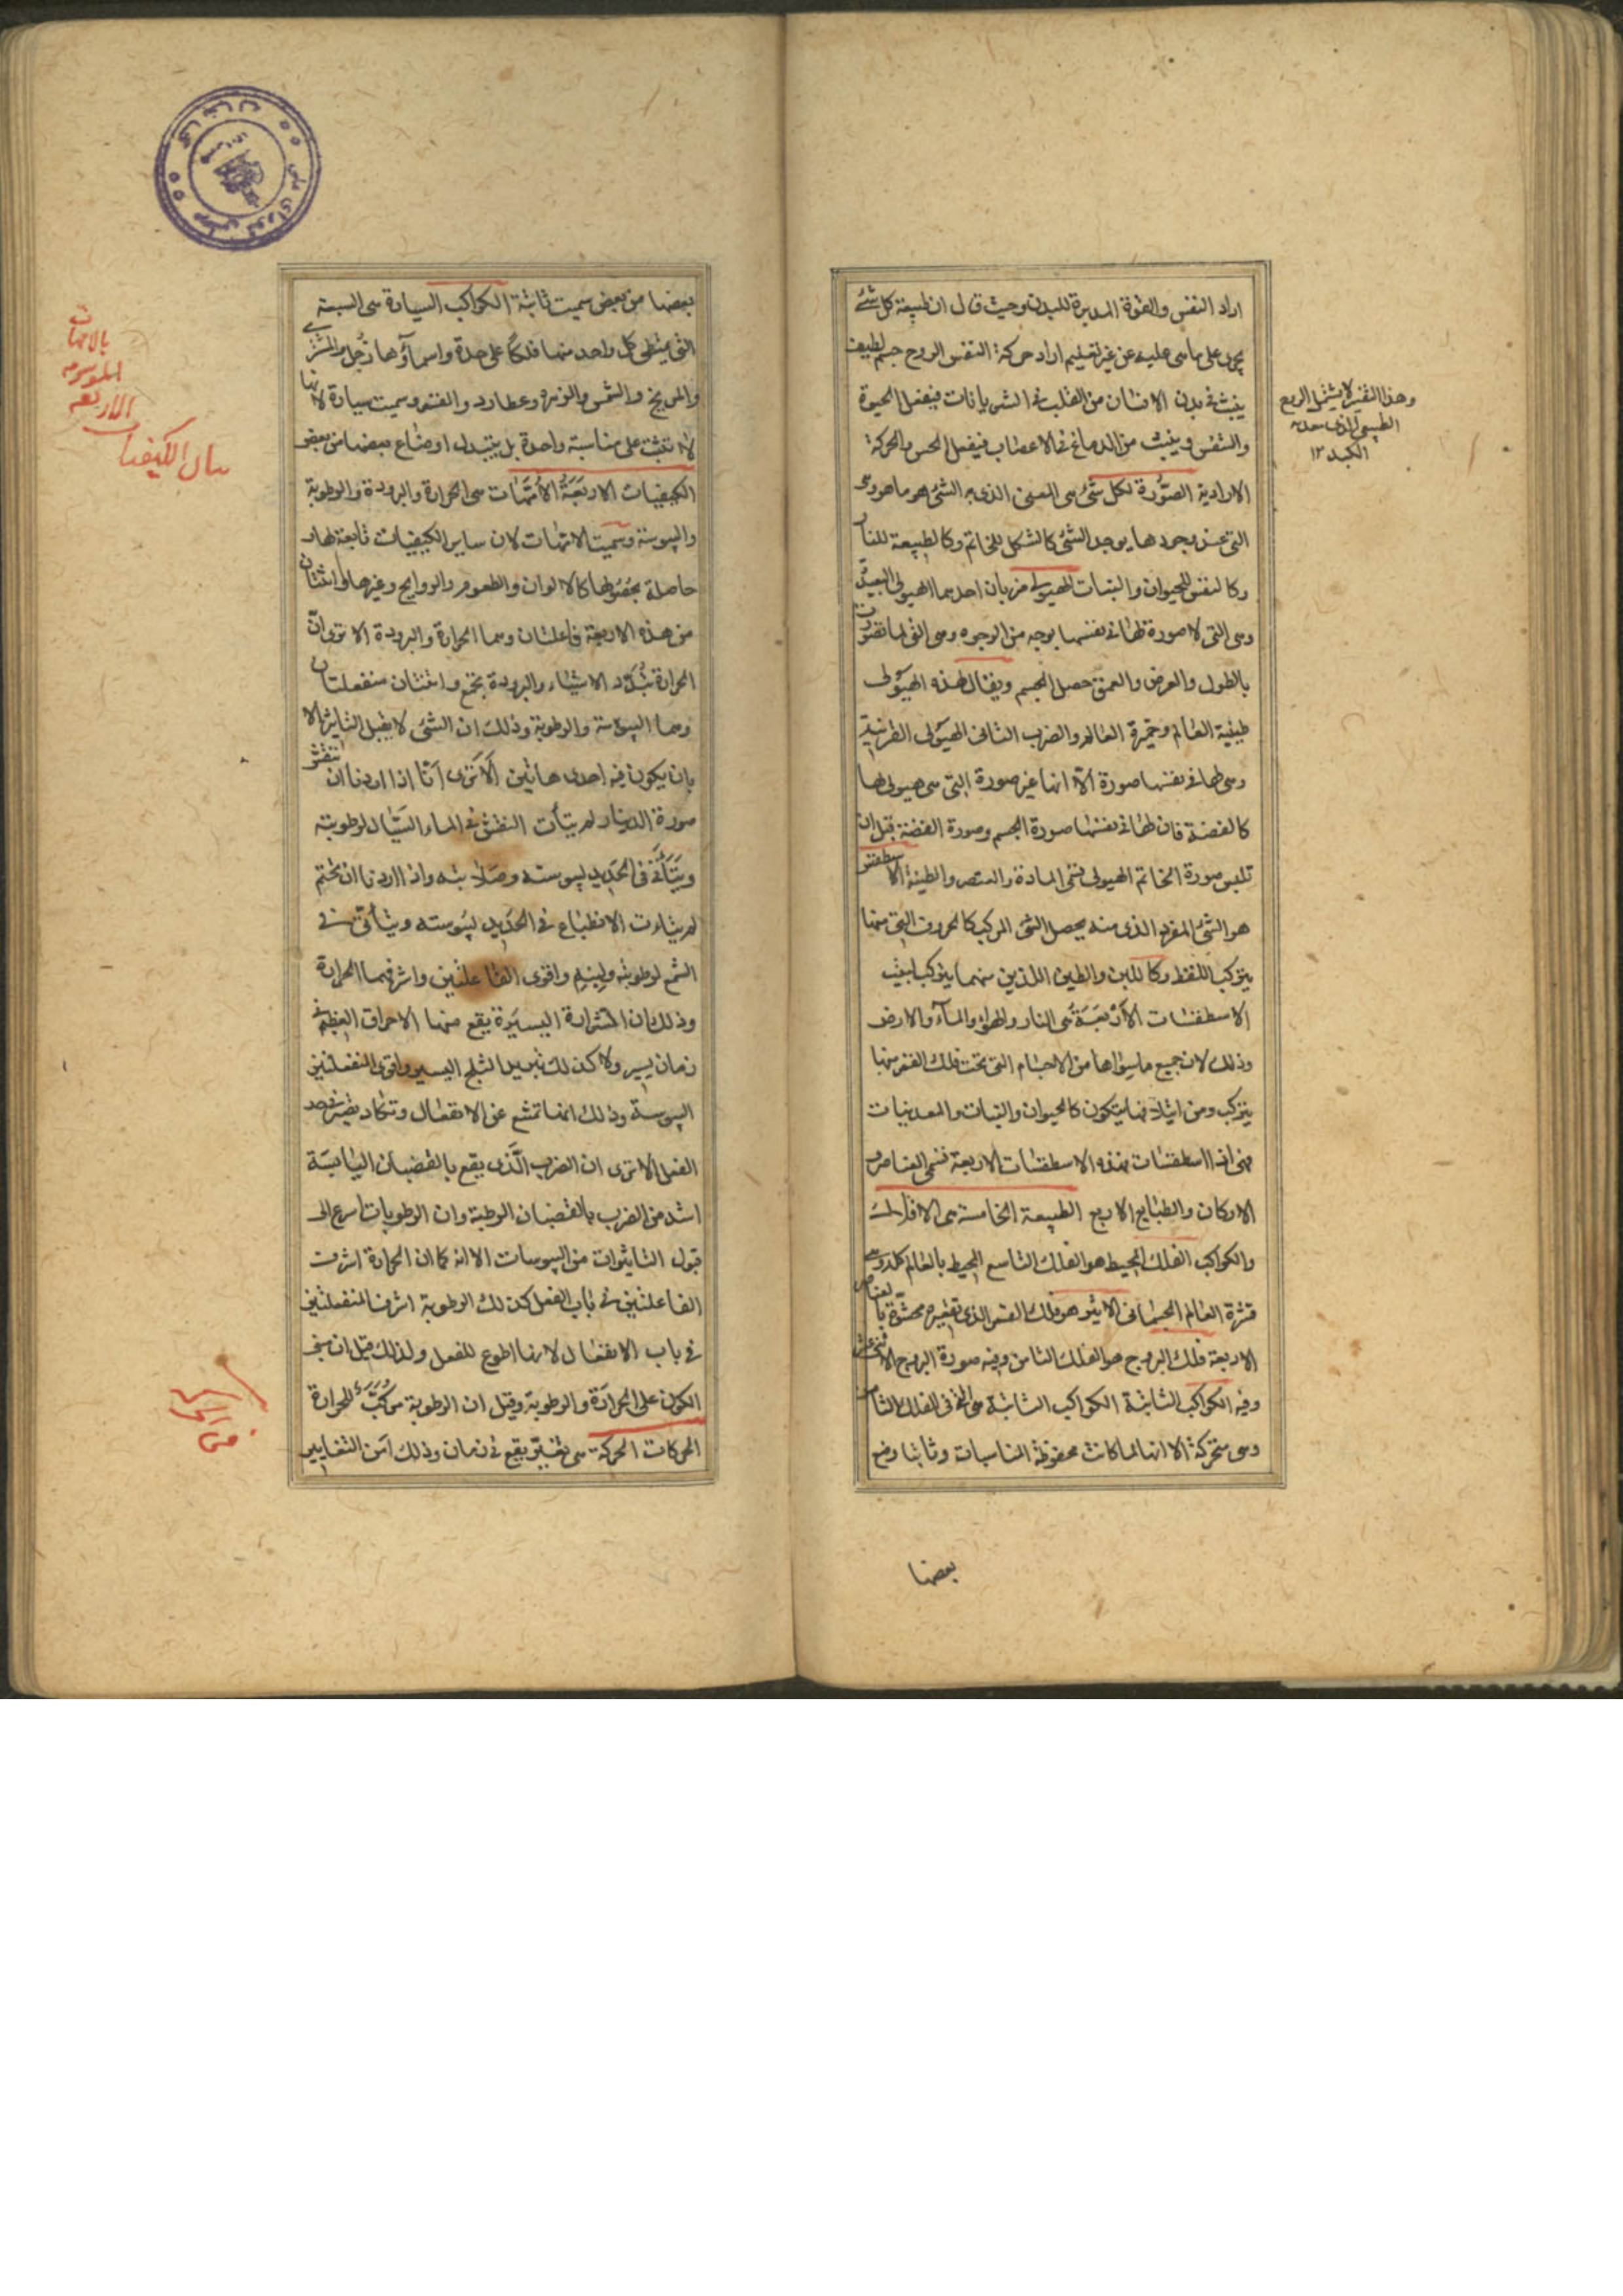 اراد النفس والقوة المدبرة للبدن وحيث قال ان طبيعة كل شئ
يجرى على ما هى عليه عن غير تعليم اراد حركة النفس الروح جسم لطيف
ينبث فى بدن الانسان من القلب فى الشريانات فيفعل الحيوة
والتنفس وينبث من الدماغ فى الاعصاب فيفعل الحس والحركة
الارادية الصُّورة لكل شئ هى المعنى الذى به الشئ هو ما هو وهى
التى عند وجودها يوجد الشئ كالشكل للخاتم وكالطبيعة للنار
وكالنفس للحيوان والنبات الهيولى ضربان احدهما الهيولى البعيدة
وهى التى لا صورة لها فى نفسها بوجه من الوجوه وهى التى لما تصورت
بالطول والعرض والعمق حصل الجسم ويقال لهذه الهيولى
طينة العالم وخميرة العالم والضرب الثانى الهيولى القريبة
وهى لها فى نفسها صورة الّا انها غير صورة التى هى هيولى لها
كالفضة فان لها فى نفسها صورة الجسم وصورة الفضة قبل ان
تلبس صورة الخاتم الهيولى تسمى المادة والعنصر والطينة الاسطقس
هو الشئ المفرد الذى منه يحصل الشئ المركب كالحروف التى منها
يتركب اللفظ وكاللبن والطين اللذين منهما يتركب البيت
الاسطقسات الأربعَة هى النار والهواء والمآء والارض
وذلك لان جميع ما سواها من الاجسام التى تحت فلك القمر منها
يتركب ومن ايتلافها يتكون كالحيوان والنبات والمعدنيات
فهى اذا اسطقسات وهذه الاسطقسات الاربعة تسمى العناصر و
الاركان والطبايع الاربع الطبيعة الخامسة هى الافلاك
والكواكب الفلك المحيط هو الفلك التاسع المحيط بالعالم كله وهى
قشرة العالم الجسمانى الاثير هو فلك القمر الذى تقعيره محشوة بالعناصر
الاربعة فلك البروج هو الفلك الثامن وفيه صورة البروج الاثنى عشر
وفيه الكواكب الثابتة الكواكب الثابتة هى التى فى الفلك الثامن
وهى متحركة الا انها لما كانت محفوظة المناسبات وثابتا وضع
بعضها
وهذا التفسير لا يشمل الروح
الطبيعى الذى معدنه
الكبد ١٢
بعضها من بعض سميت ثابتة الكواكب السيارة هى السبعة
التى يمتطى كل واحد منها فلكاً على حدة واسمآؤها زُحل والمشترى
والمريخ والشمس والزهرة وعطارد والقمر وسميت سيارة لانها
لا تثبت على مناسبة واحدة بل يتبدل اوضاع بعضها من بعض
الكيفيات الاربَعَةُ الأُمَّهَات هى الحرارة والبرودة والرطوبة
واليبوسة وسميت الامهات لان ساير الكيفيات تابعة لها و
حاصلة بحصولها كالالوان والطعوم والروايح وغيرها واثنتان
من هذه الاربعة فاعلتان وهما الحرارة والبرودة الا ترى انّ
الحرارة تُبدّد الاشياء والبرودة تجمع واثنتان منفعلتان
وهما اليبوسة والرطوبة وذلك ان الشئ لا يقبل التاثير الا
بان يكون فيه احدى هاتين ألا ترى أنّا اذا اردنا ان ننقش
صورة الدينار لم يتأت النقش فى الماء السيّال لرطوبته
ويتأتى فى الحديد ليبوسته وصلابته واذا اردنا ان نختم
لم يتأت الانطباع فى الحديد ليبوسته ويتأتى فى
الشمع لرطوبته ولينه واقوى الفاعلتين واشرفهما الحرارة
وذلك ان الشرارة اليسيرة يقع منها الاحراق العظيم فى
زمان يسير ولا كذلك تبريد الثلج اليسير واقوى المنفعلتين
اليبوسة وذلك انها تمتنع عن الانفعال وتكاد تصير ضد
الفعل الا ترى ان الضرب الّذى يقع بالقضبان اليابسَة
اشد من الضرب بالقضبان الرطبة وان الرطوبات اسرع الى
قبول التاثيرات من اليبوسات الا انه كما ان الحرارة اشرف
الفاعلتين فى باب الفعل كذلك الرطوبة اشرف المنفعلتين
فى باب الانفعال لانها اطوع للفعل ولذلك قيل ان مبنى
الكون على الحرارَة والرطوبة وقيل ان الرطوبة مركب للحرارة
الحركات الحركة هى تغيّر يقع فى زمان وذلك أمن التغايير
بيان الكيفيات
الاربعه
الموسومه
بالامهات